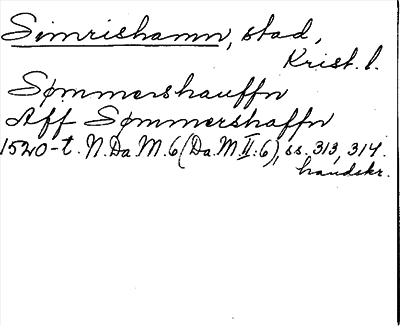 Simrishamn, stad,
Krist. l.
Sømmershauffn
Aff Sømmershaffn
1520-t. N.Da.M.6 (Da.M.II:6), ss. 313, 314.
handskr.